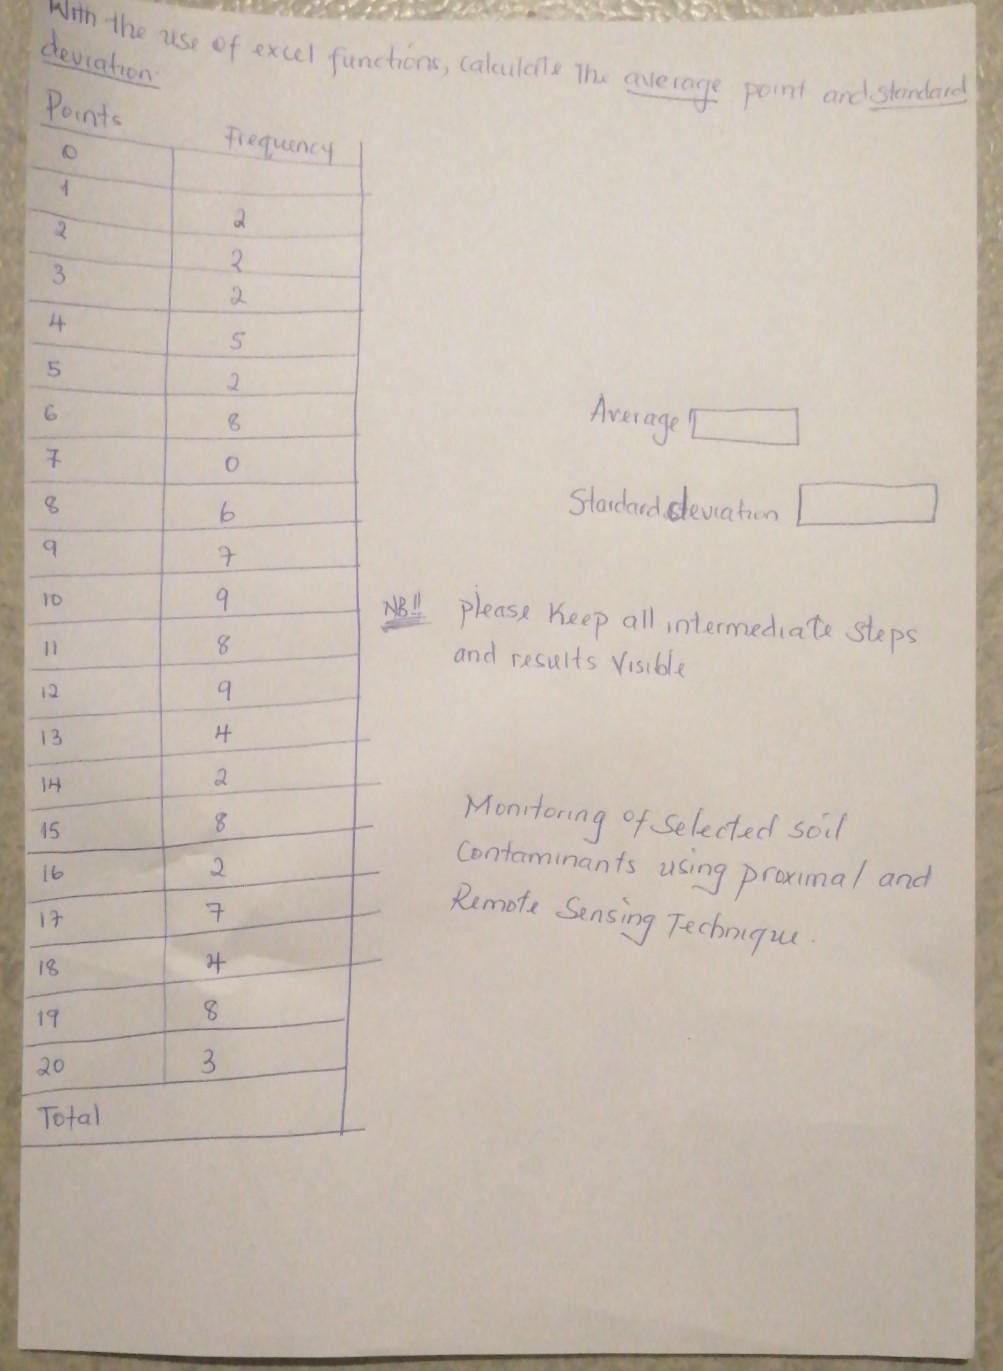 With the use of excel functions, calculate The average point and standard
deviation.
Points Frequency
0
1 2
2 2
3 2
4 5
5 2
6 8
7 0
8 6
9 7
10 9
11 8
12 9
13 4
14 2
15 8
16 2
17 7
18 4
19 8
20 3
Total
Average
Stardard deviation
NB!! please Keep all intermediate steps
and results Visible
Monitoring of Selected soil
Contaminants using proximal and
Remote Sensing Technique.